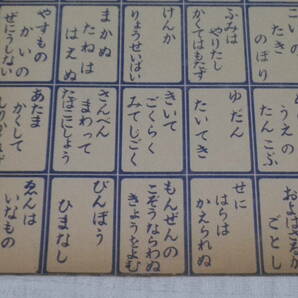 こいの
たき
のぼり
ふみは
やりたし
かくてはもたず
けんか
りょうせいばい
まかぬ
たねは
はえぬ
やすもの
かいの
ぜにうしない
うえの
たんこぶ
ゆだん
たいてき
きいて
ごくらく
みてじごく
さんべん
まわって
たばこにしょう
あたま
かくして
しりかくさず
ごとし
せに
はらは
かえられぬ
もんぜんの
こぞうならわぬ
きょうをよむ
びんぼう
ひまなし
ゑんは
いなもの